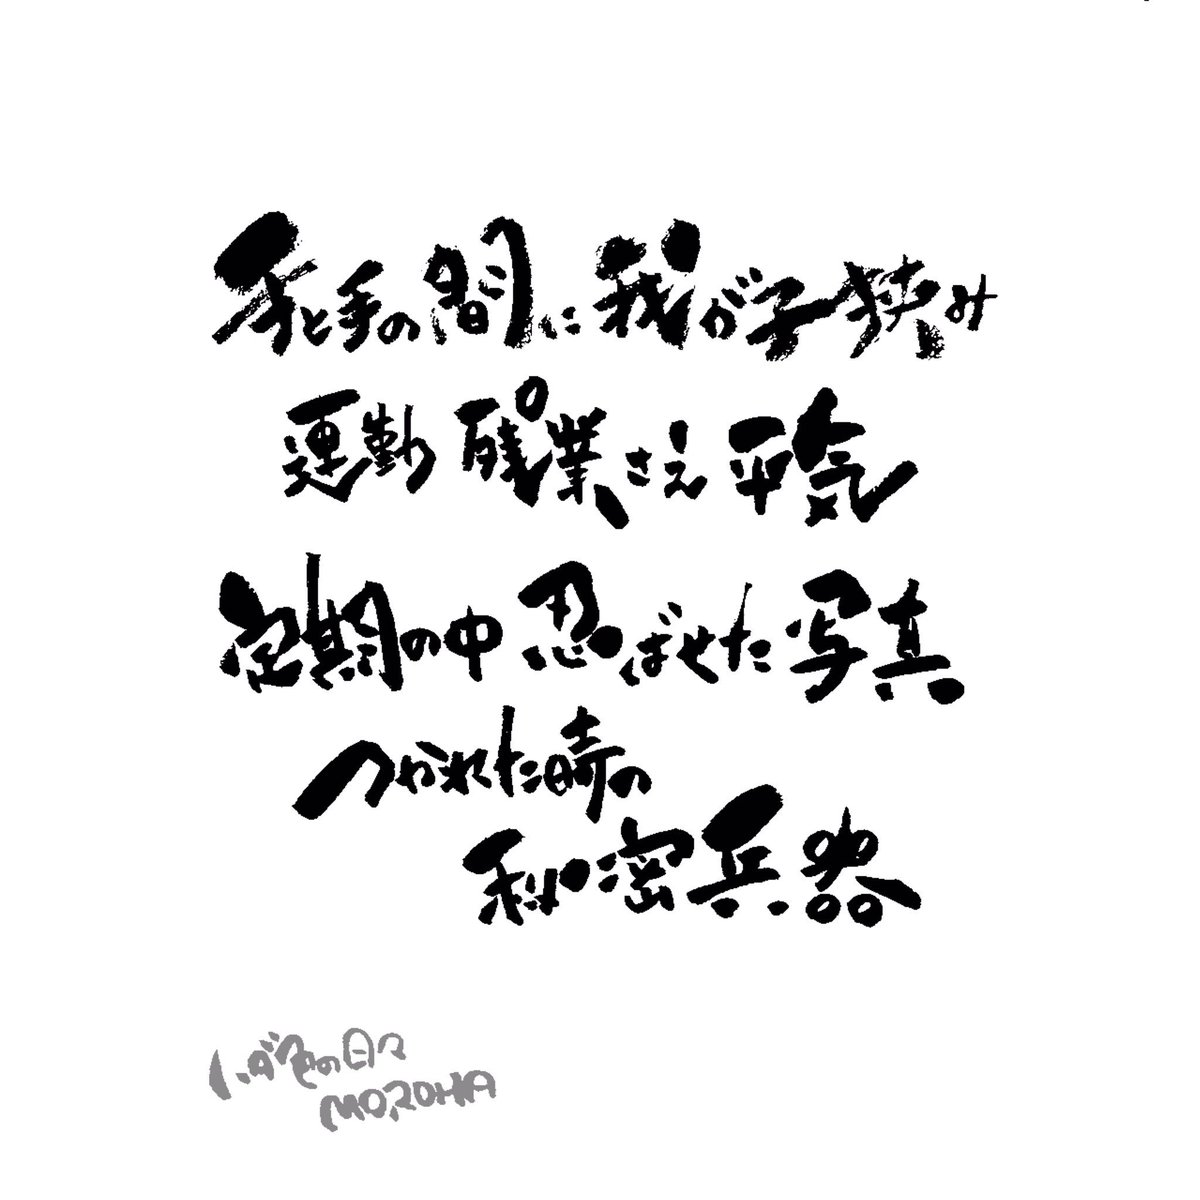 手と手の間に我が子挟み
運動 残業さえ平気
定期の中 忍ばせた写真
つかれた時の
秘密兵器
いぶ色の日々
MOROHA